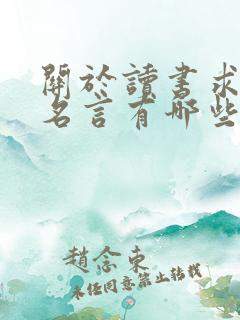 關於讀書求
名言有哪些
趙念東
未经同意禁止转载